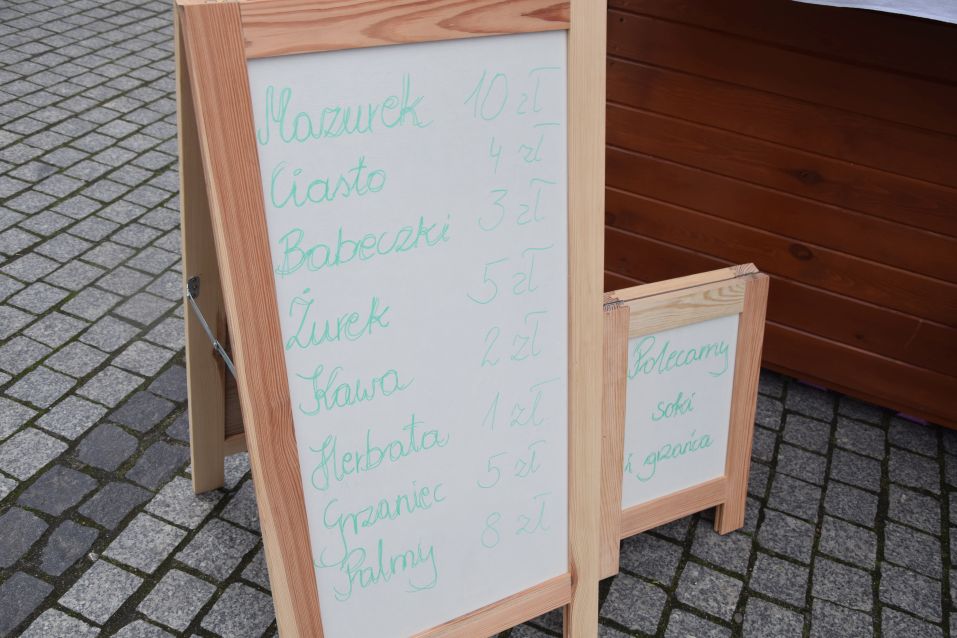 Mazurek 10 zł
Ciasto 4 zł
Babeczki 3 zł
Żurek 5 zł
Kawa 2 zł
Herbata 1 zł
Grzaniec 5 zł
Palmy 8 zł
Polecamy
soki
i grzańca